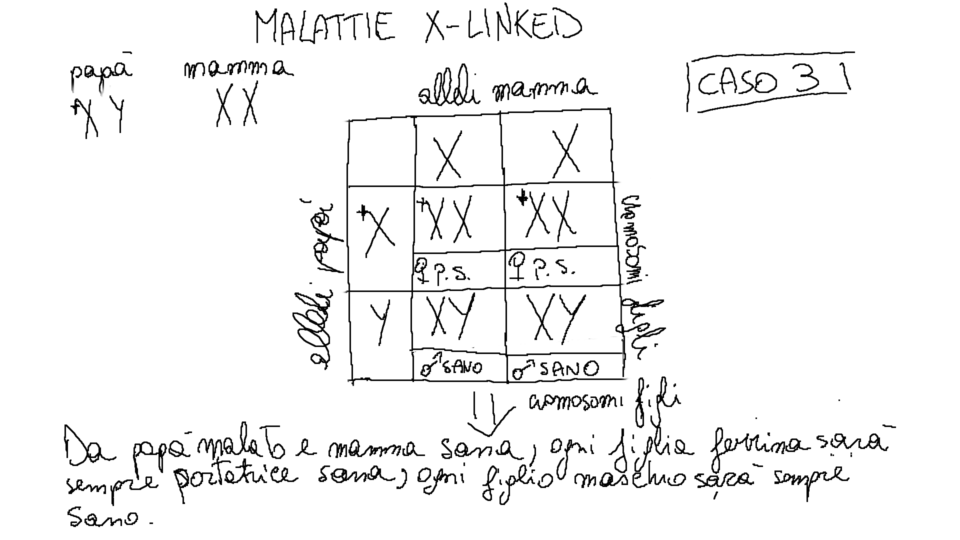 MALATTIE X-LINKED
papà mamma
+XY XX
CASO 3
alleli mamma
X X
alleli papà
+X +XX +XX
♀ p.s. ♀ p.s.
Y XY XY
♂ SANO ♂ SANO
cromosomi figli
cromosomi figli
Da papà malato e mamma sana, ogni figlia femmina sarà
sempre portatrice sana, ogni figlio maschio sarà sempre
sano.